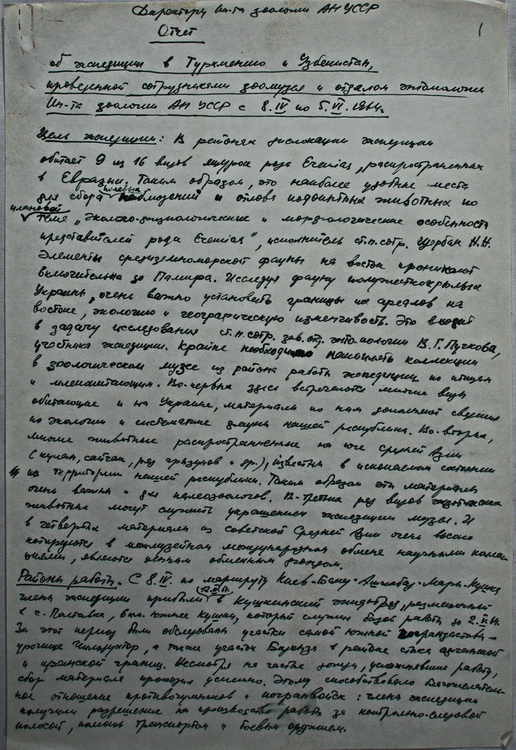 Директору Ин-та зоологии АН УССР
1
Отчет
об экспедиции в Туркмению и Узбекистан,
проведенной сотрудниками зоомузея и отделом энтомологии
Ин-та зоологии АН УССР с 8.IV по 5.VI.1964г.
Цель экспедиции: В районах дислокации экспедиции
обитает 9 из 16 видов ящурок рода Eremias, распространенных
в Евразии. Таким образом, это наиболее удобные места
для сбора полевых наблюдений и отлова подопытных животных по
плановой теме „Эколого- и морфологические особенности
представителей рода Eremias", исполнитель ст.н.сотр. Щербак Н.Н.
Элементы средиземноморской фауны на восток проникают
включительно до Памира. Исследуя фауну полужесткокрылых
Украины, очень важно установить границы их ареалов на
востоке, экологию и географическую изменчивость. Это входит
в задачу исследования ст.н.сотр. зав.отд. энтомологии В.Г. Пучкова,
участника экспедиции. Крайне необходимо пополнить коллекции
в зоологическом музее из района работ экспедиции по птицам
и млекопитающим. Во-первых здесь встречаются многие виды
обитающие и на Украине, материалы по ним дополняют сведения
по экологии и систематике фауны нашей республики. Во-вторых,
многие животные распространенные на юге Средней Азии
(кулан, сайгак, ряд грызунов и др.), известны в ископаемом состоянии
на территории нашей республики. Таким образом эти материалы
очень важны и для палеозоологов. В-третьих ряд видов
животных могут служить украшением экспозиции музея. И
в четвертых материалы из советской Средней Азии очень высоко
котируются в международном обмене научными коллек-
циями, являются ценным обменным фондом.
Районы работ. С 8.IV. по маршруту Киев-Баку-Ашхабад-Мары-Кушка
члены экспедиции прибыли в Кушкинский
в с. Полтавка, южнее Кушки, который служил базой работ до 2.V.64г.
За этот период были обследованы участки самой южной
урочище, а также участки Бадхыза в районе стыка афганской
и иранской границ. Несмотря на частые дожди, усложнявшие работу,
сбор материала проходил успешно. Этому способствовало благожелатель-
ное отношение противочумников и погранвойск: члены экспедиции
получили разрешение на производство работ за контрольно-следовой
полосой, помощь транспортом и боевым оружием.